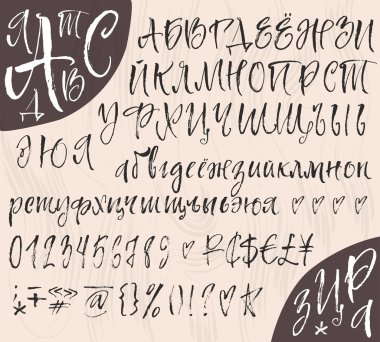 Я А Т
А В С
Д
АБВГДЕЁЖЗИ
ЙКЛМНОПРСТ
УФХЦЧШЩЪЫЬ
ЭЮЯ
абвгдеёжзийклмноп
рстуфхцчшщъыьэюя ♡ ♡ ♡ ♡
0123456789 ♡ ₽₵$£¥
@{}%()!?
ЗИР
*Ца